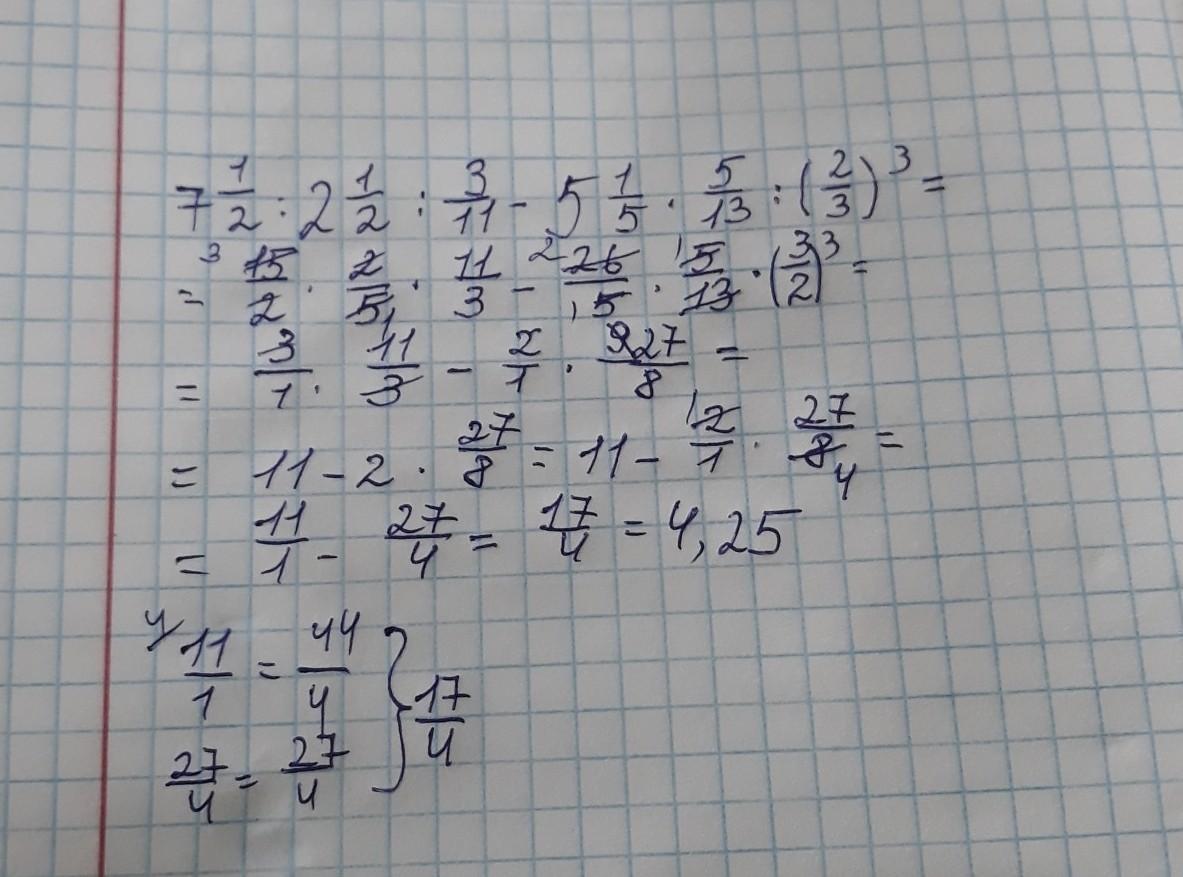 7 1/2 : 2 1/2 : 3/11 - 5 1/5 · 5/13 : (2/3)³ =
= 15/2 · 2/5 · 11/3 - 26/5 · 5/13 · (3/2)³ =
= 3/1 · 11/3 - 2/1 · 27/8 =
= 11 - 2 · 27/8 = 11 - 2/1 · 27/8 =
= 11/1 - 27/4 = 17/4 = 4,25
4/ 11/1 = 44/4 } 17/4
27/4 = 27/4